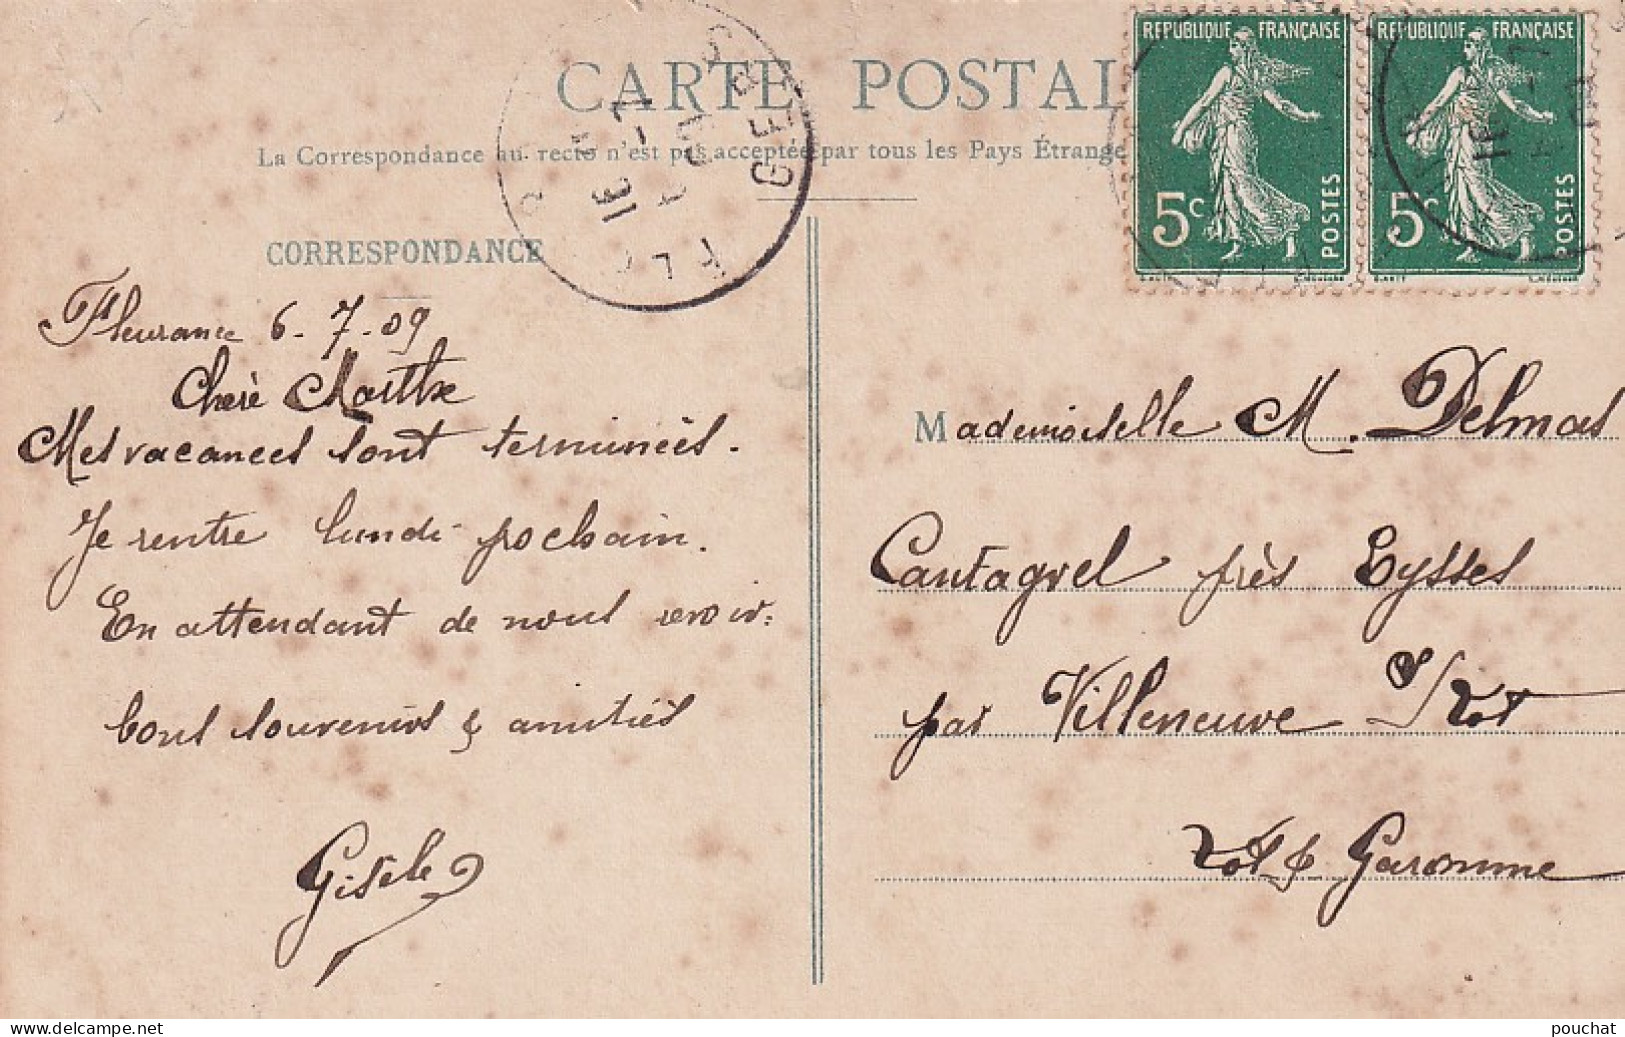 CARTE POSTAL
La Correspondance au recto n'est pas acceptée par tous les Pays Étrange
CORRESPONDANCE
Fleurance 6-7-09
Chère Marthe
Mes vacances sont terminées.
Je rentre lundi prochain.
En attendant de nous revoir
bons souvenirs & amitiés
Gisèle
REPUBLIQUE FRANÇAISE
5c POSTES
REPUBLIQUE FRANÇAISE
5c POSTES
FL
GERS
Mademoiselle M. Delmas
Cantagrel près Eysses
par Villeneuve s/Lot
Lot & Garonne
delcampe.net
pouchat